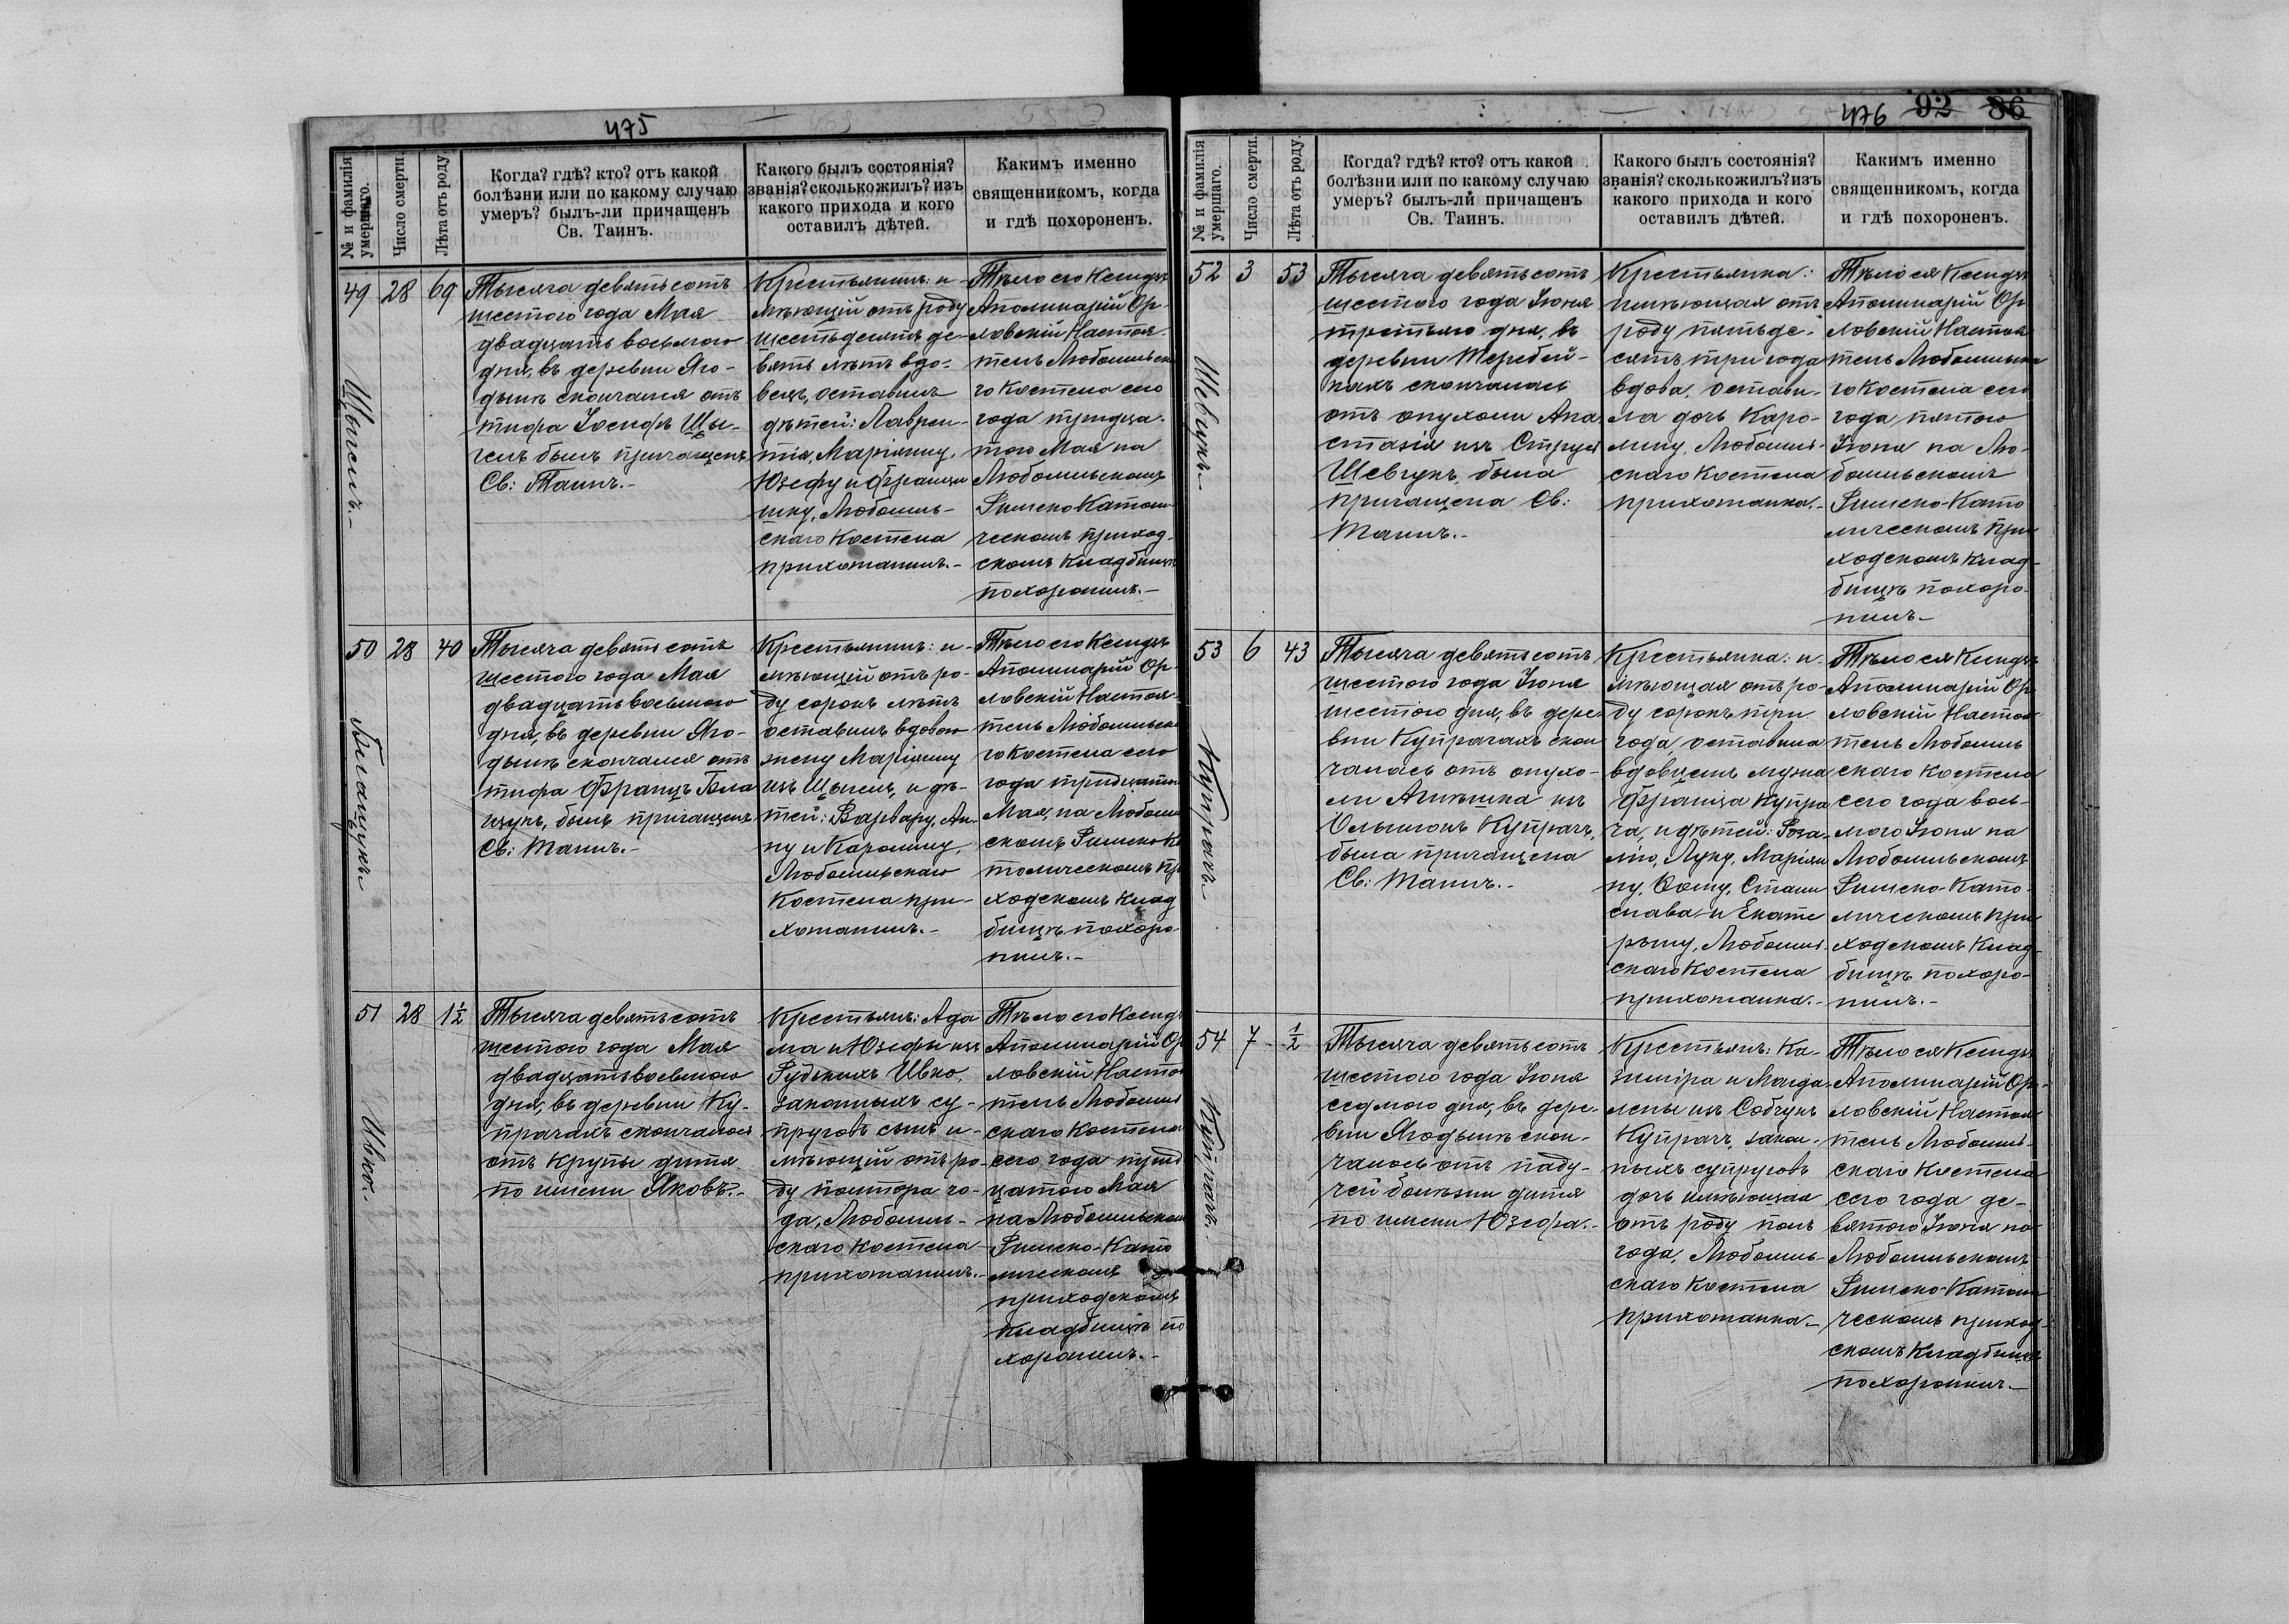 475
№ и фамилія умершаго.
Число смерти.
Лѣта отъ роду.
Когда? гдѣ? кто? отъ какой
болѣзни или по какому случаю
умеръ? былъ-ли причащенъ
Св. Таинъ.
Какого былъ состоянія?
званія? сколько жилъ? изъ
какого прихода и кого
оставилъ дѣтей.
Какимъ именно
священникомъ, когда
и гдѣ похороненъ.
49
Щыгелъ.-
28
69
Тысяча девятьсотъ
шестого года Мая
двадцать восьмого
дня, въ деревни Яго-
дынѣ скончался отъ
тифа Іосифъ Щы-
гелъ былъ причащенъ
Св: Таинъ.-
Крестьянинъ: и-
мѣющій отъ роду
шестьдесятъ де-
вять лѣтъ вдо-
вецъ, оставилъ
дѣтей: Лаврен-
тія, Маріянну,
Юзефу и Францы
шку, Любомль-
скаго Костела
прихожанинъ.-
Тѣло его Ксендзъ
Аполинарій Ор-
ловскій Настоя-
тель Любомльска
го Костела сего
года тридца-
того Мая на
Любомльскомъ
Римско Католи
ческомъ приход-
скомъ Кладбищѣ
похоронилъ.-
50
Белащукъ.-
28
40
Тысяча девятьсотъ
шестого года Мая
двадцать восьмого
дня, въ деревни Яго-
дынѣ скончался отъ
тифа Францъ Бела
щукъ, былъ причащенъ
Св: Таинъ.-
Крестьянинъ: и-
мѣющій отъ ро-
ду сорокъ лѣтъ
оставилъ вдовою
жену Маріянну
изъ Щыгель, и дѣ-
тей: Варвару, Ан-
ну и Каролину,
Любомльскаго
Костела при-
хожанинъ.-
Тѣло его Ксендзъ
Аполинарій Ор-
ловскій Настоя-
тель Любомльска
го Костела сего
года тридцатого
Мая, на Любомль
скомъ Римско Ка
толическомъ при
ходскомъ Клад
бищѣ похоро
нилъ.-
51
Ивко.-
28
1½
Тысяча девятьсотъ
шестого года Мая
двадцать восьмого
дня, въ деревни Ку-
прачахъ скончалось
отъ крупы дитя
по имени Яковъ.-
Крестьянъ: Ада
ма и Юзефы изъ
Рудскихъ Ивко,
законныхъ су-
пруговъ сынъ и-
мѣющій отъ ро-
ду полтора го-
да, Любомль-
скаго Костела
прихожанинъ.-
Тѣло его Ксендзъ
Аполинарій Ор
ловскій Настоя
тель Любомль
скаго Костела
сего года трид
цатого Мая
на Любомльскомъ
Римско-Като
лическомъ
приходскомъ
Кладбищѣ по
хоронилъ.-
476 92 86
№ и фамилія умершаго.
Число смерти.
Лѣта отъ роду.
Когда? гдѣ? кто? отъ какой
болѣзни или по какому случаю
умеръ? былъ-ли причащенъ
Св. Таинъ.
Какого былъ состоянія?
званія? сколько жилъ? изъ
какого прихода и кого
оставилъ дѣтей.
Какимъ именно
священникомъ, когда
и гдѣ похороненъ.
52
Шевчукъ.-
3
53
Тысяча девятьсотъ
шестого года Іюня
третьяго дня, въ
деревни Теребей-
кахъ скончалась
отъ опухоли Ана
стазія изъ
Шевчукъ, была
причащена Св:
Таинъ.-
Крестьянка:
имѣющая отъ
роду пятьде-
сятъ три года
вдова, остави-
ла дочь Каро-
лину, Любомль-
скаго Костела
прихожанка.-
Тѣло ея Ксендзъ
Аполинарій Ор
ловскій Настоя
тель Любомльска
го Костела сего
года пятого
Іюня на Лю-
бомльскомъ
Римско-Като
лическомъ при
ходскомъ Клад-
бищѣ похоро-
нилъ-
53
Купрачъ.-
6
43
Тысяча девятьсотъ
шестого года Іюня
шестого дня, въ дере-
вни Купрачахъ скон
чалась отъ опухо-
ли изъ
Купрачъ,
была причащена
Св: Таинъ.-
Крестьянка: и-
мѣющая отъ ро-
ду сорокъ три
года, оставила
вдовцемъ мужа
Франца Купра
ча, и дѣтей: Роза-
лію, Луку, Маріян
ну, Стани
слава и Екате
рину, Любомль-
скаго Костела
прихожанка.-
Тѣло ея Ксендзъ
Аполинарій Ор
ловскій Настоя
тель Любомль
скаго Костела
сего года вось-
мого Іюня на
Любомльскомъ
Римско-Като-
лическомъ при
ходскомъ Клад-
бищѣ похоро-
нилъ.-
54
Купрачъ.
7
½
Тысяча девятьсотъ
шестого года Іюня
седмого дня, въ дере-
вни Ягодынѣ скон-
чалось отъ паду-
чей болѣзни дитя
по имени Юзефа.-
Крестьянъ: Ка-
зиміра и Магда-
лены изъ Собчукъ
Купрачъ, закон-
ныхъ супруговъ
дочь имѣющая
отъ роду полъ
года, Любомль-
скаго Костела
прихожанка.-
Тѣло ея Ксендзъ
Аполинарій Ор-
ловскій Настоя
тель Любомль-
скаго Костела
сего года де-
вятого Іюня на
Любомльскомъ
Римско-Католи
ческомъ приход-
скомъ Кладбищѣ
похоронилъ.-